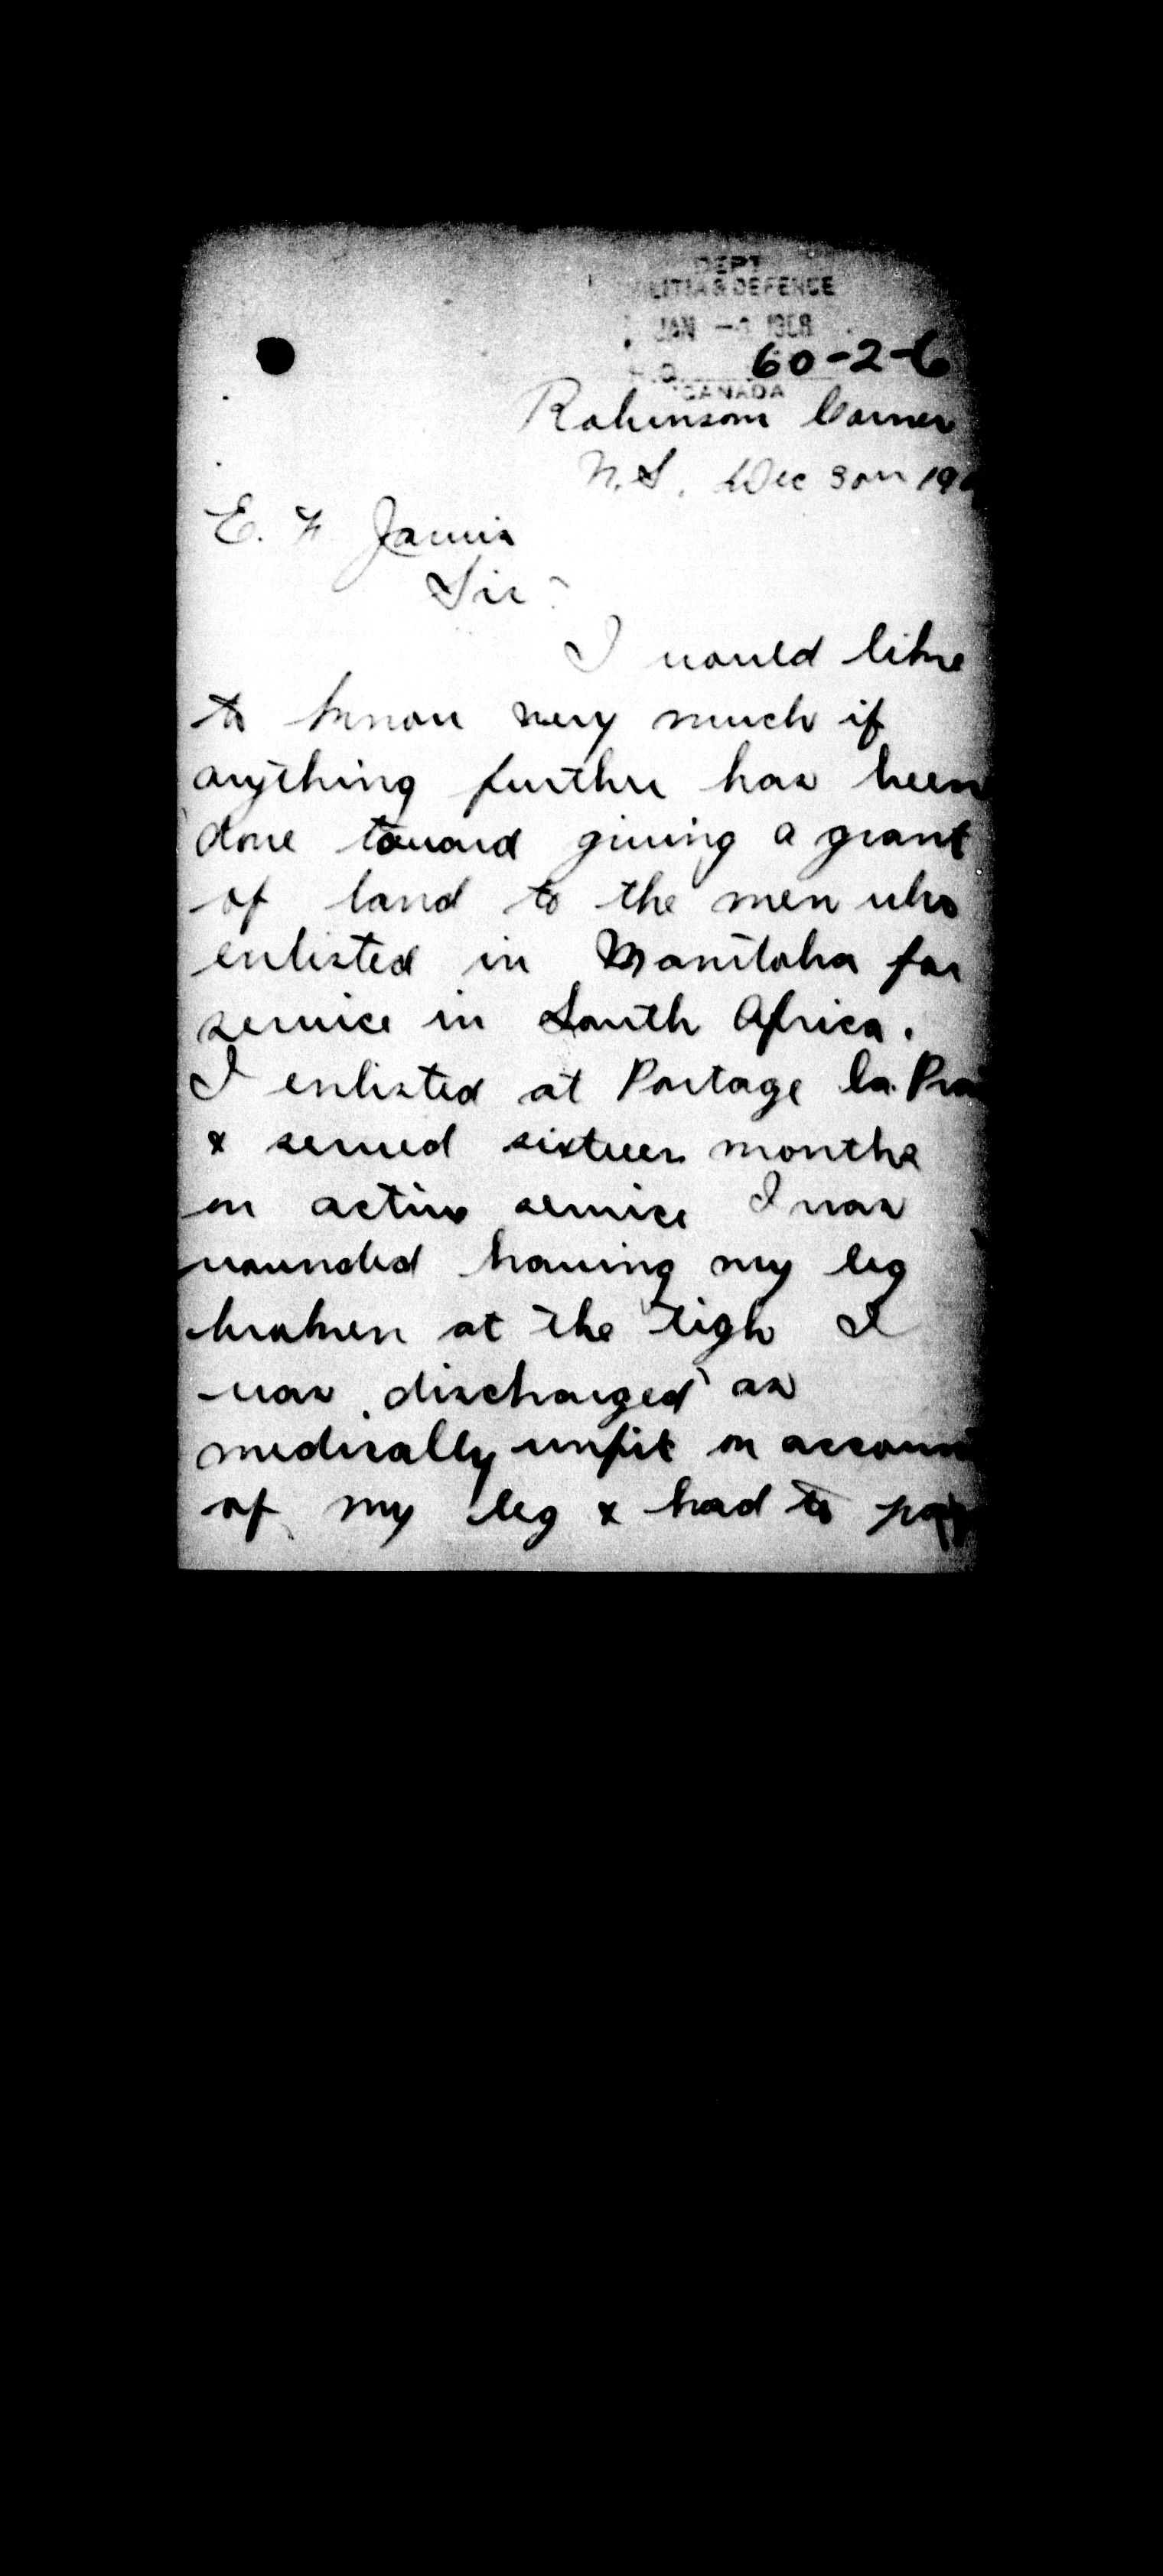 DEPT
LITIA & DEFENCE
JAN 1908
60-2-6
H.Q.
CANADA
Robinson Corner
N.S. Dec 30th 190
E. F. Jarvis
Sir:
I would like
to know very much if
anything further has been
done toward giving a grant
of land to the men who
enlisted in Manitoba for
service in South Africa.
I enlisted at Portage la Prai
& served sixteen months
on active service I was
wounded having my leg
broken at the tigh I
was discharged as
medically unfit on account
of my leg & had to pay